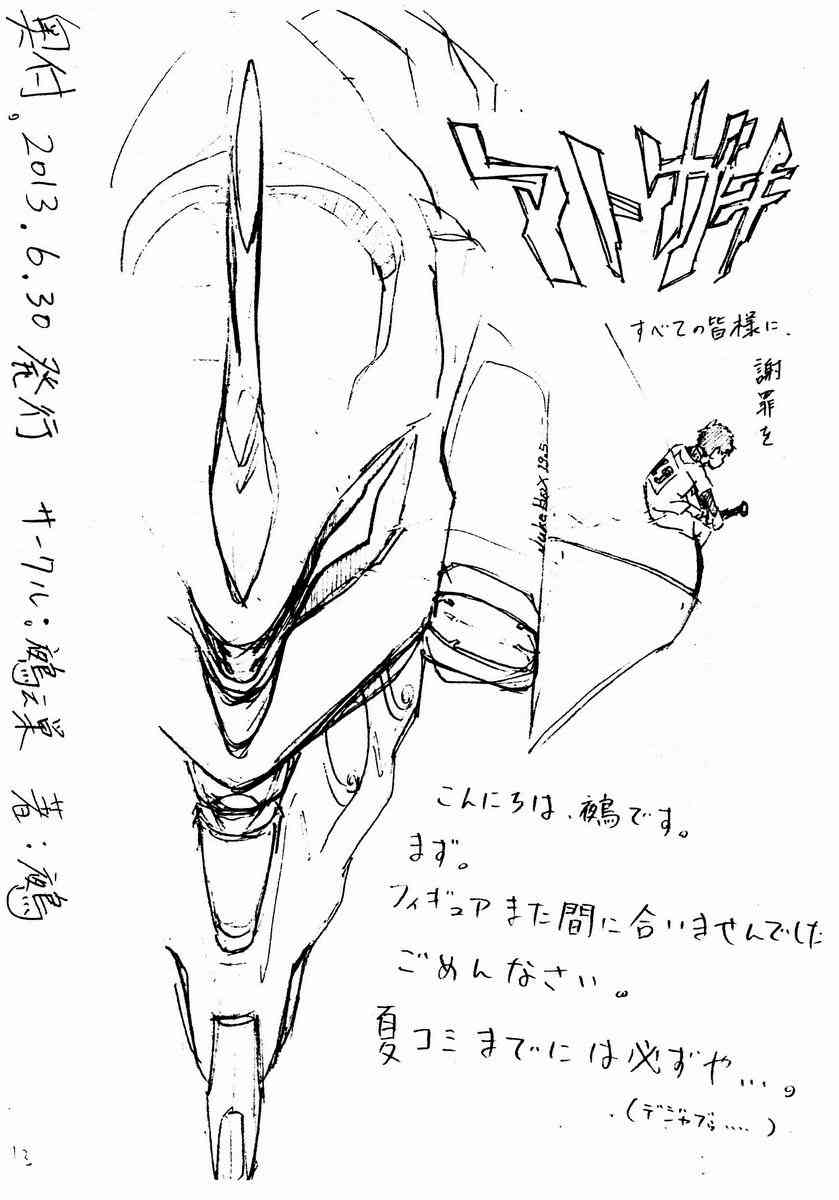 アトガキ
すべての皆様に、
謝罪を
19
Juke Box 19.5
こんにちは、鵺です。
まず。
フィギュアまた間に合いませんでした
ごめんなさい。
夏コミまでには必ずや…。
(デジャブら‥‥)
奥付。2013.6.30発行 サークル:鵺ノ巣 著:鵺
13